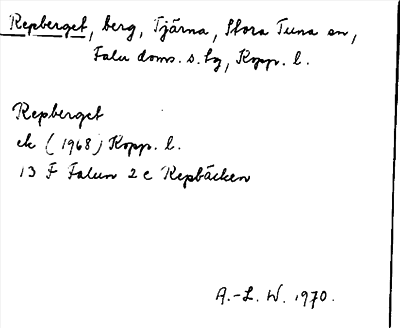 Repberget, berg, Tjärna, Stora Tuna sn,
Falu doms. s. lg, Kopp. l.
Repberget
ek (1968) Kopp. l.
13 F Falun 2 c Repbäcken
A.-L. W. 1970.